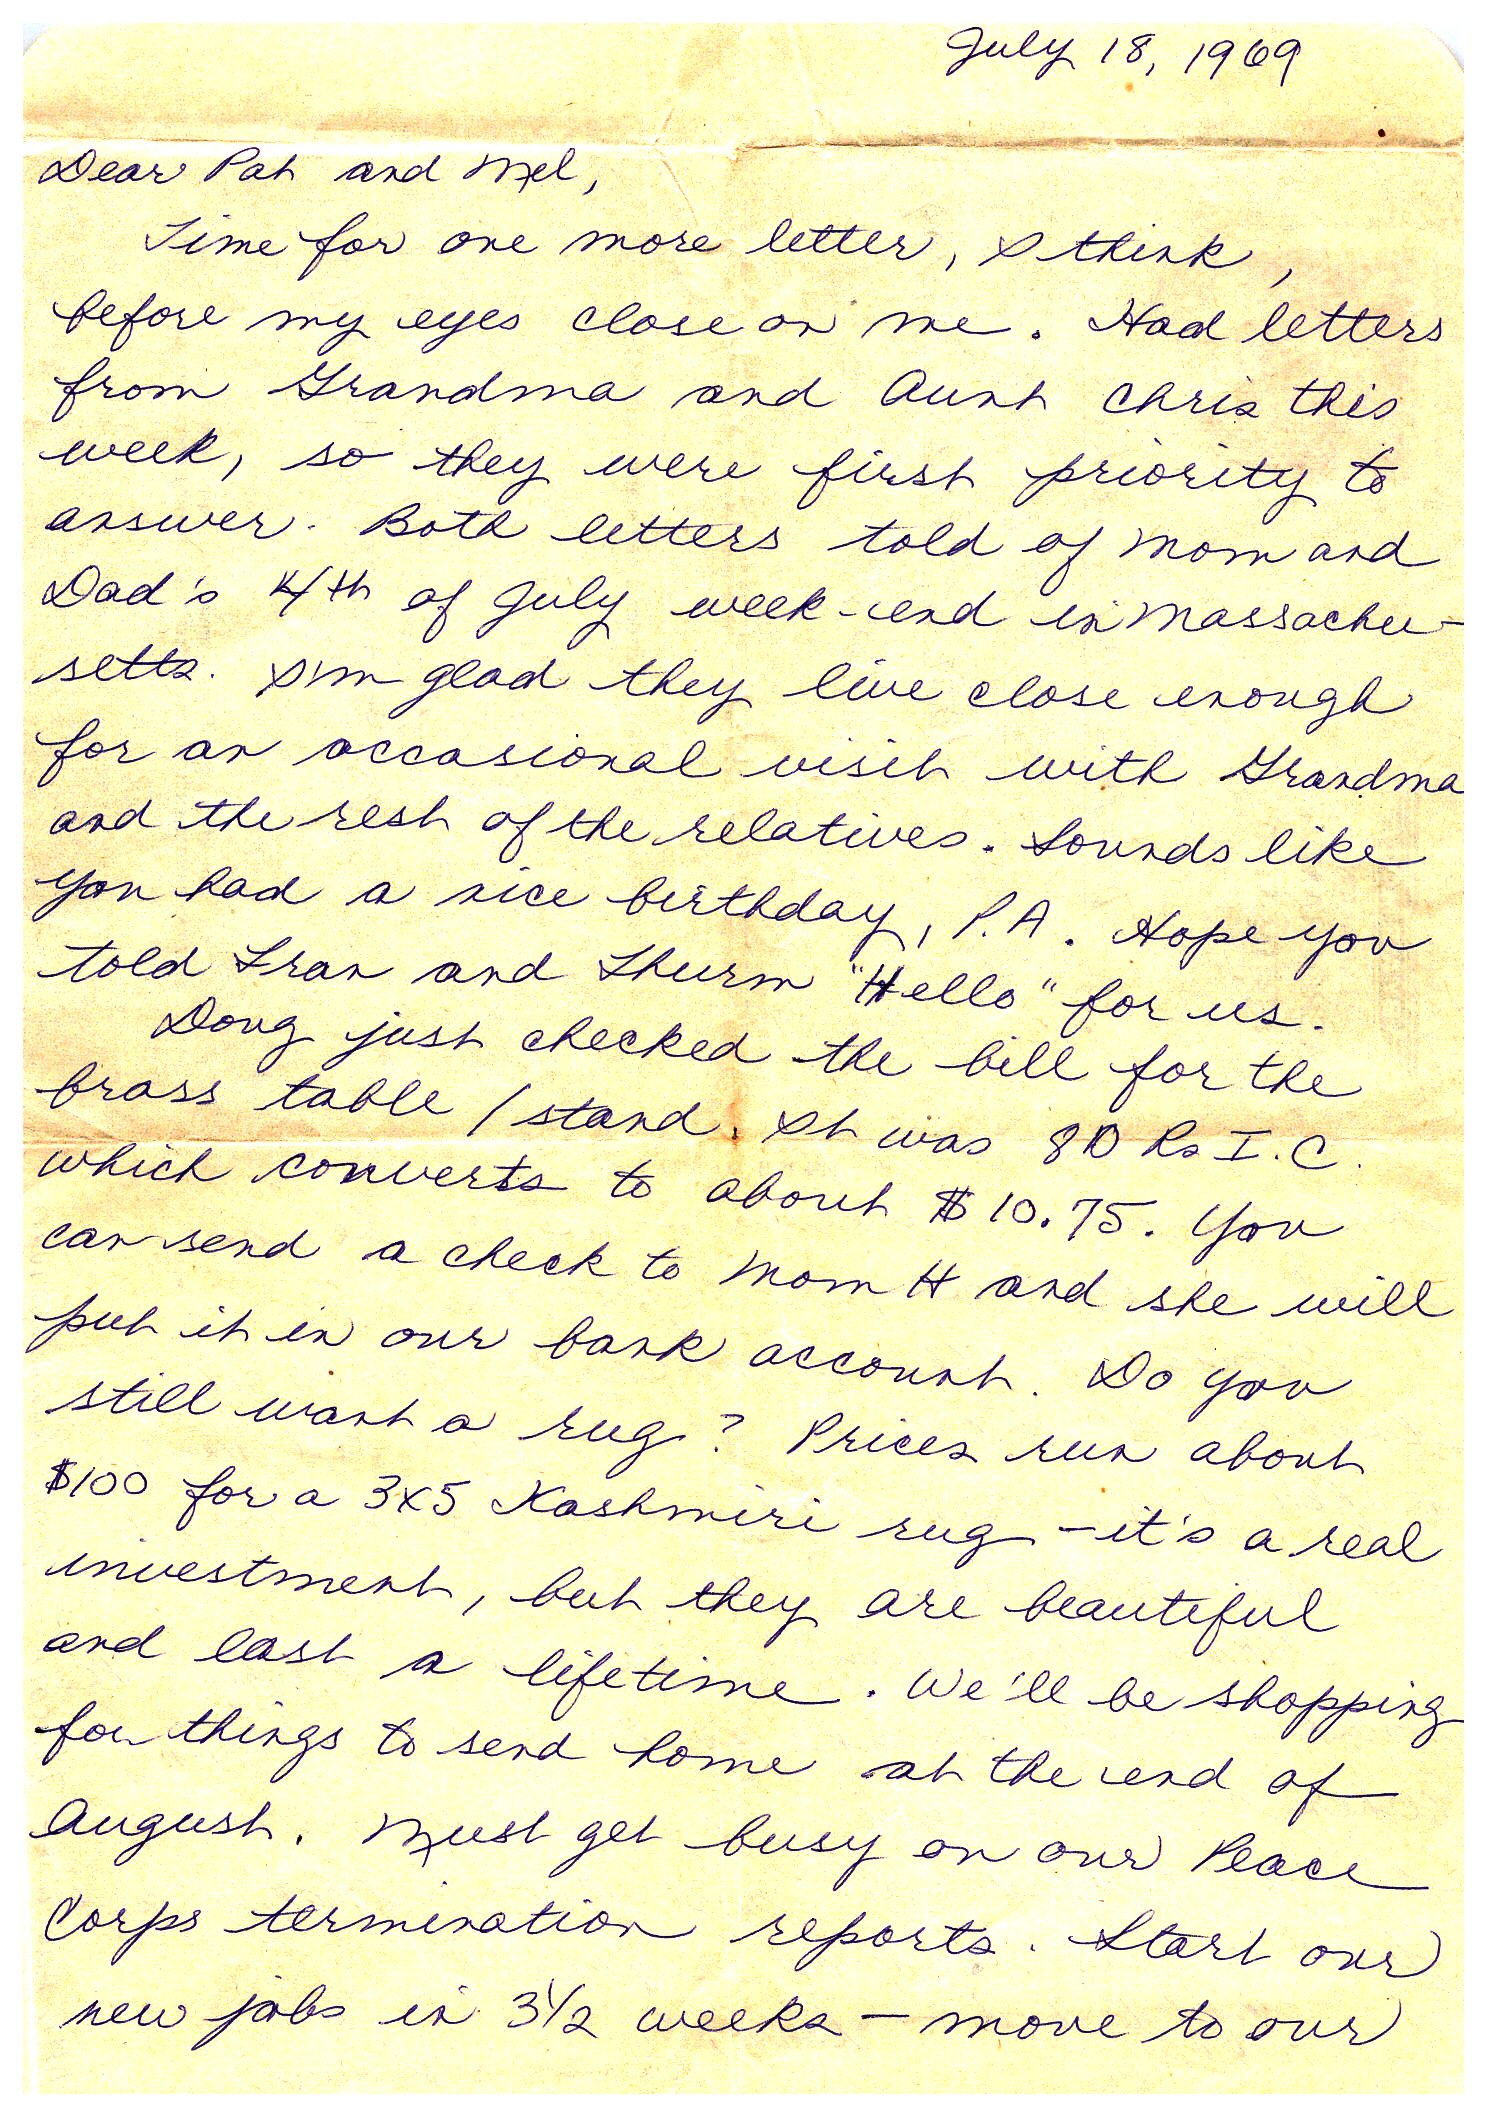 July 18, 1969
Dear Pat and Mel,
Time for one more letter, I think,
before my eyes close on me. Had letters
from Grandma and Aunt Chris this
week, so they were first priority to
answer. Both letters told of Mom and
Dad's 4th of July week-end in Massachu-
setts. I'm glad they live close enough
for an occasional visit with Grandma
and the rest of the relatives. Sounds like
you had a nice birthday, P.A. Hope you
told Fran and Thurm "Hello" for us.
Doug just checked the bill for the
brass table/stand. It was 80 Rs I.C.
which converts to about $10.75. You
can send a check to Mom H and she will
put it in our bank account. Do you
still want a rug? Prices run about
$100 for a 3x5 Kashmiri rug - it's a real
investment, but they are beautiful
and last a lifetime. We'll be shopping
for things to send home at the end of
August. Must get busy on our Peace
Corps termination reports. Start our
new jobs in 3 1/2 weeks - move to our